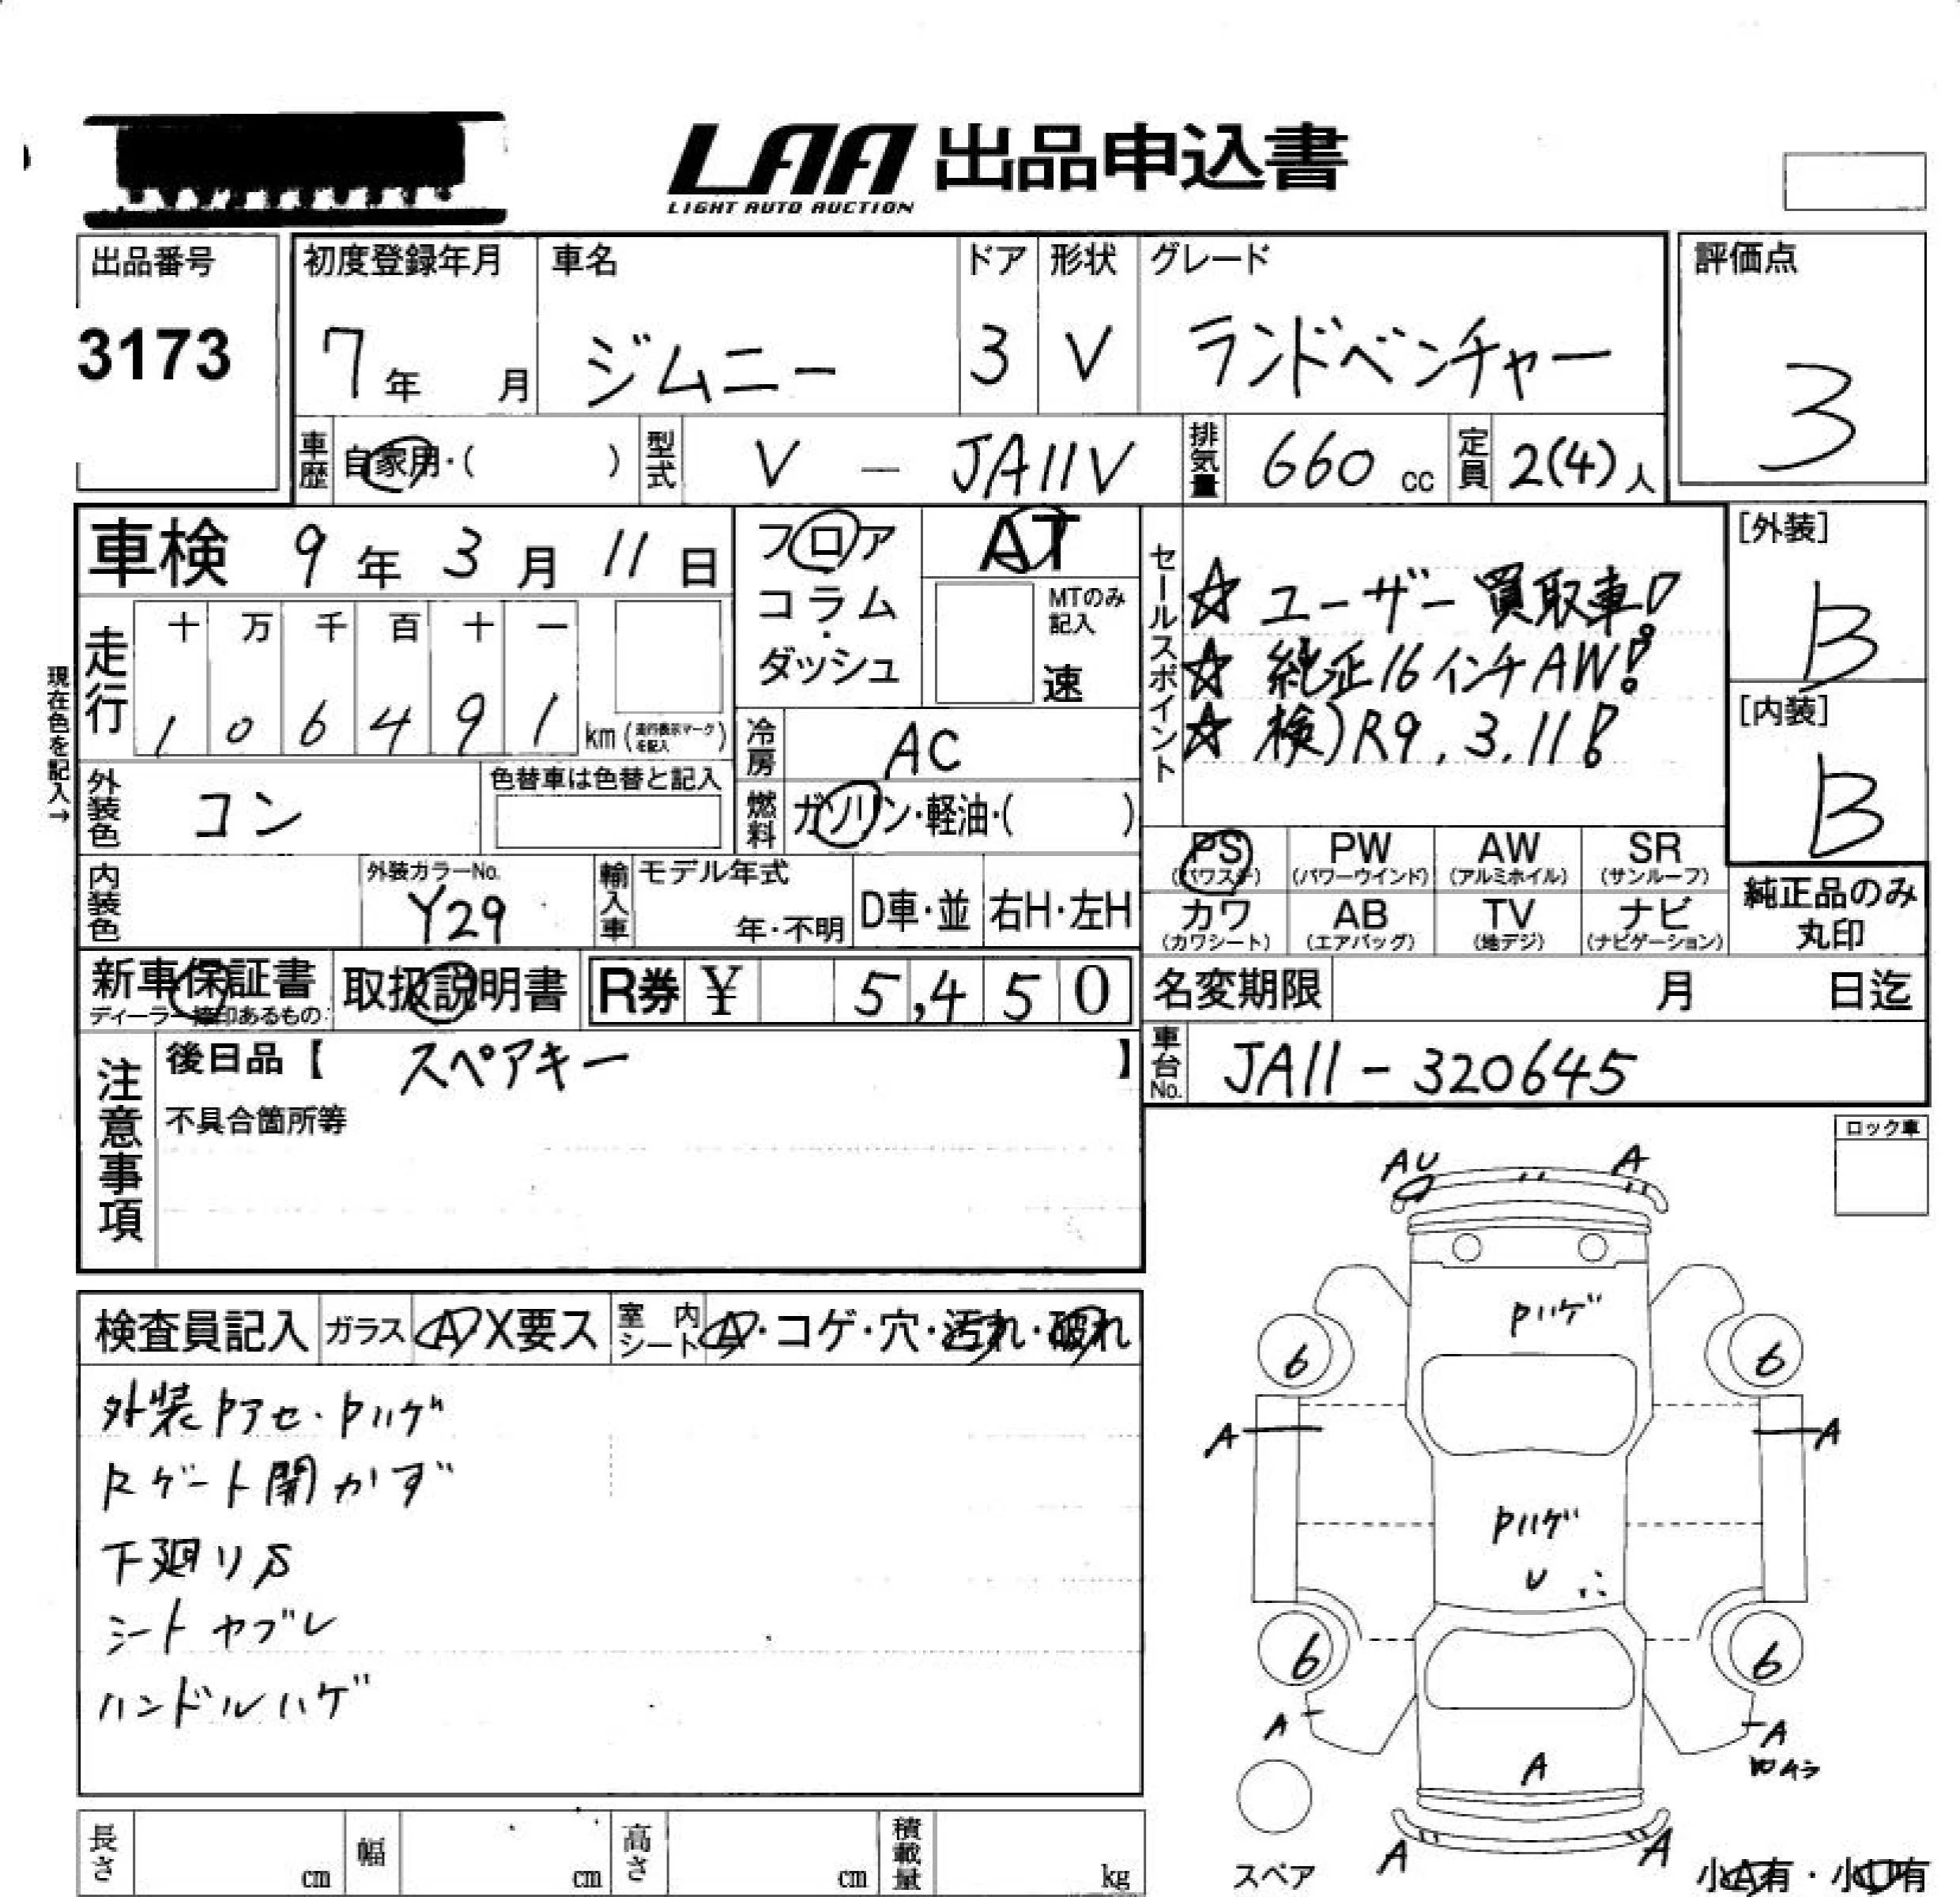 LAA 出品申込書
LIGHT AUTO AUCTION
出品番号
3173
初度登録年月
7年 月
車名
ジムニー
ドア
3
形状
V
グレード
ランドベンチャー
評価点
3
車歴 自家用・( )
型式 V - JA11V
排気量 660 cc
定員 2(4)人
車検 9年3月11日
フロア
コラム
ダッシュ
AT
MTのみ
記入
速
セールスポイント
☆ ユーザー買取車!
☆ 純正16インチAW!
☆ 検)R9.3.11!
[外装]
B
[内装]
B
現在色を記入→
走行
十 万 千 百 十 一
1 0 6 4 9 1 km (走行表示マークを記入)
冷房 AC
外装色 コン
色替車は色替と記入
燃料 ガソリン・軽油・( )
内装色
外装カラーNo.
Y29
輸入車
モデル年式
年・不明
D車・並
右H・左H
PS (パワステ)
PW (パワーウインド)
AW (アルミホイル)
SR (サンルーフ)
カワ (カワシート)
AB (エアバッグ)
TV (地デジ)
ナビ (ナビゲーション)
純正品のみ
丸印
新車保証書
ディーラー捺印あるもの
取扱説明書
R券 ¥ 5,450
名変期限 月 日迄
注意事項
後日品【 スペアキー 】
不具合箇所等
車台No. JA11-320645
ロック車
検査員記入
ガラス A X要ス
室内シート A・コゲ・穴・汚れ・破れ
外装Pアセ・Pハゲ
Rゲート開かず
下廻りS
シートヤブレ
ハンドルハゲ
AU
A
Pハゲ
6
6
A
A
Pハゲ
U
6
6
A
A
A
A
A
スペア
小A有・小U有
長さ cm
幅 cm
高さ cm
積載量 kg